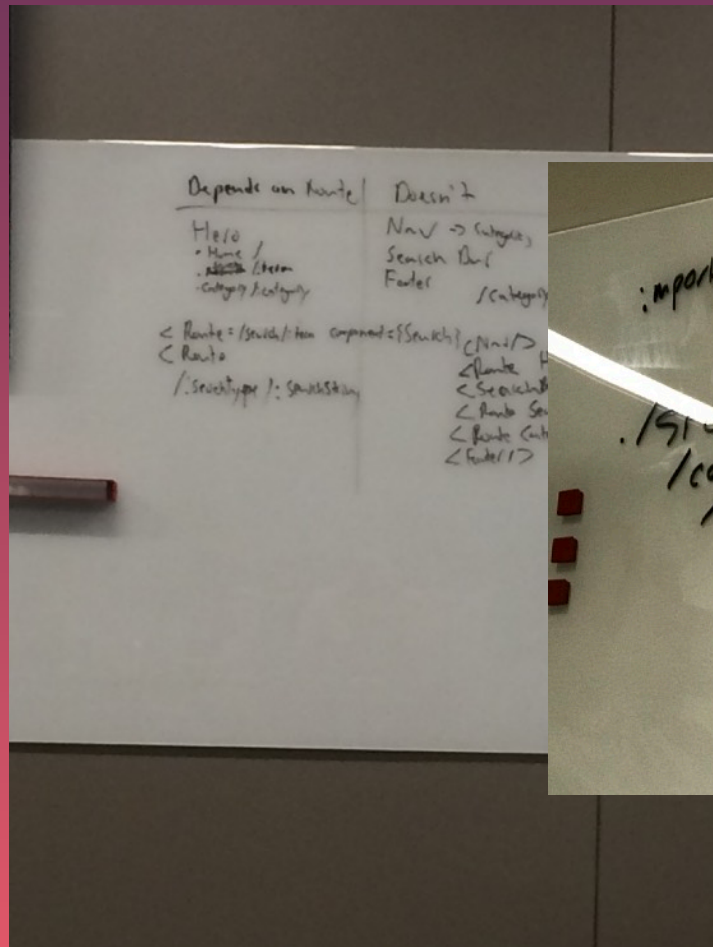 Depends on Route
Hero
• Home /
/:term
• Category /:category
< Route = /search/:term component={Search}
< Route
/:searchType /: searchString
Doesn't
Nav -> Categories
Search Bar
Footer
/category
<Nav/>
<Route H
<SearchB
<Route Sea
<Route Cate
<Footer/>
import
./src
/co
/